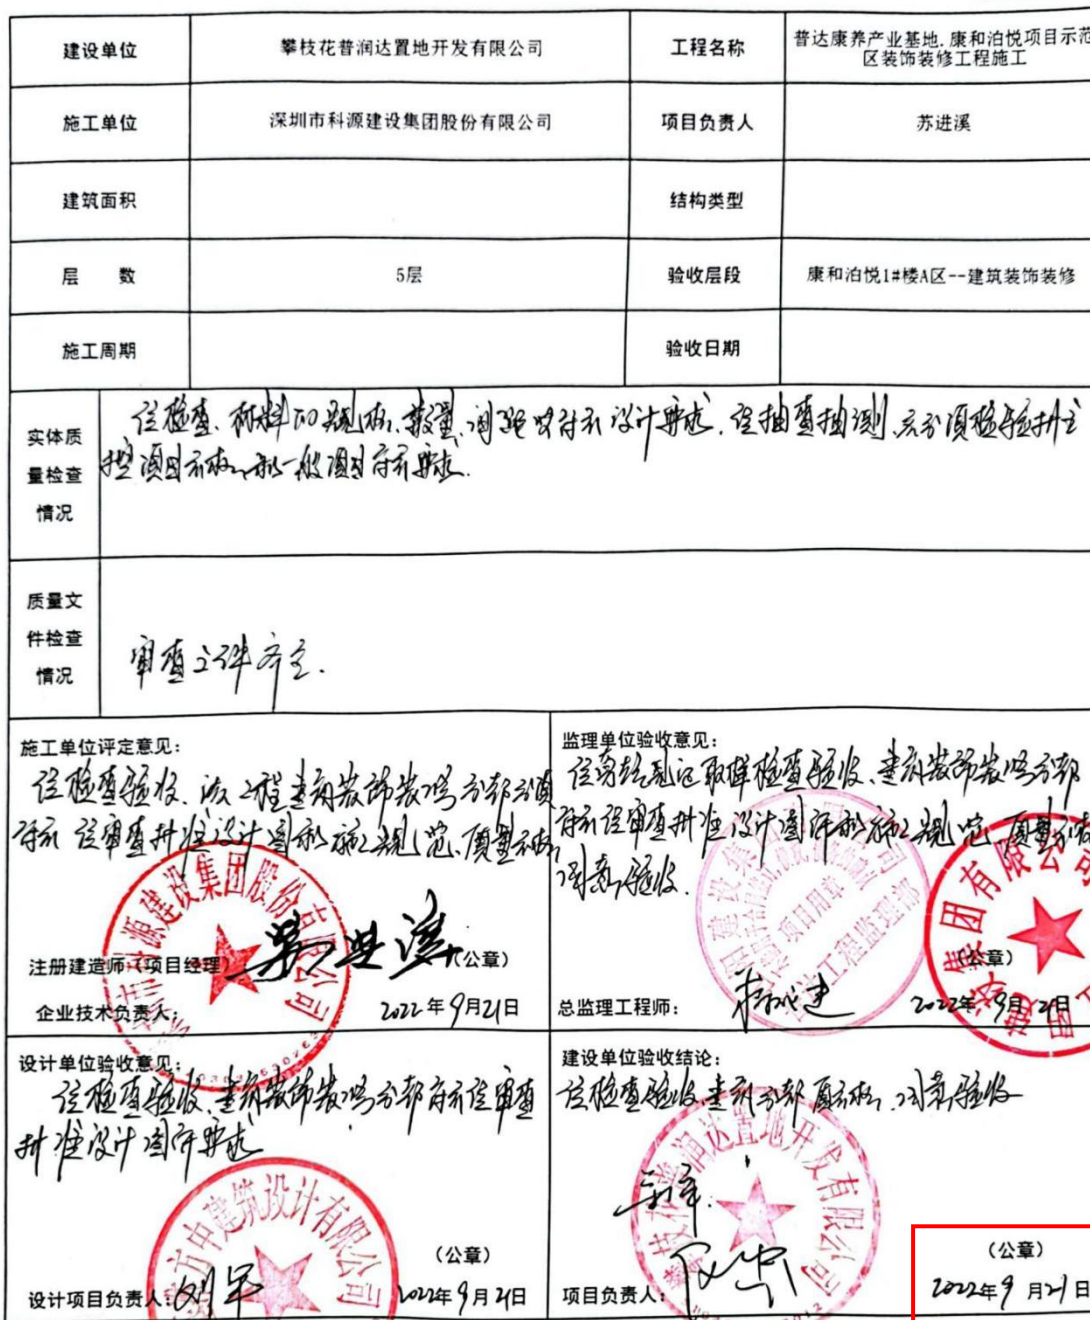 建设单位 攀枝花普润达置地开发有限公司 工程名称 普达康养产业基地.康和泊悦项目示范
区装饰装修工程施工
施工单位 深圳市科源建设集团股份有限公司 项目负责人 苏进溪
建筑面积 结构类型
层 数 5层 验收层段 康和泊悦1#楼A区--建筑装饰装修
施工周期 验收日期
实体质
量检查
情况
经检查、材料的规格、数量、 设计要求.经抽查抽测, 分项检验批主
控项目 一般项目 要求.
质量文
件检查
情况
审查文件齐全.
施工单位评定意见:
经检查验收、该工程建筑装饰装修分部分项
符合经审查批准设计图和施工规范、质量合格,
同意验收.
注册建造师(项目经理) (公章)
企业技术负责人: 2022年9月21日
监理单位验收意见:
取样检查验收、建筑装饰装修分部
符合经审查批准设计图 和施工规范、质量合格
同意验收.
项目用章
工程监理部
(公章)
总监理工程师: 2022年9月21日
设计单位验收意见:
经检查验收,建筑装饰装修分部符合经审查
批准设计图 要求
(公章)
设计项目负责人: 2022年9月21日
建设单位验收结论:
经检查验收,建筑分部 合格、同意验收
(公章)
项目负责人: 2022年9月21日